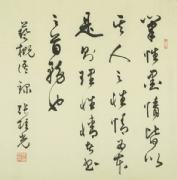 筆性墨情皆以
其人之性情為本
是則理性情者書
之首務也
藝概語錄 張種光